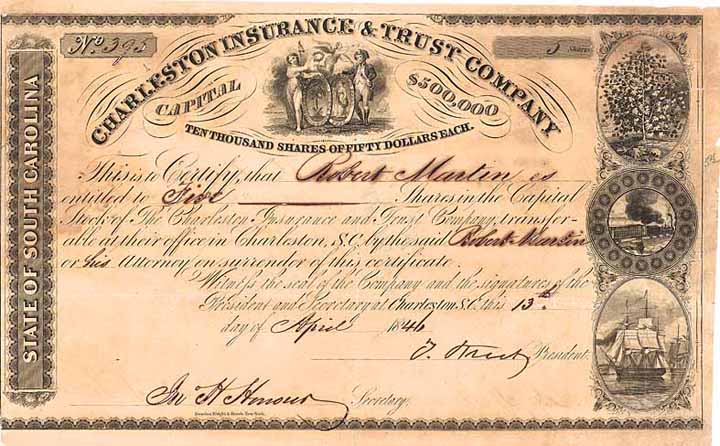 No. 395
5 Shares
CHARLESTON INSURANCE & TRUST COMPANY
CAPITAL $500,000
TEN THOUSAND SHARES OF FIFTY DOLLARS EACH.
STATE OF SOUTH CAROLINA
This is to Certify, that Robert Martin is
entitled to Five Shares in the Capital
Stock of The Charleston Insurance and Trust Company, transfer-
able at their office in Charleston, S.C. by the said Robert Martin
or his Attorney on surrender of this certificate.
Witness the seal of the Company and the signatures of the
President and Secretary at Charleston S.C. this 13th
day of April 1846
T. Street President.
Jno H Honour Secretary.